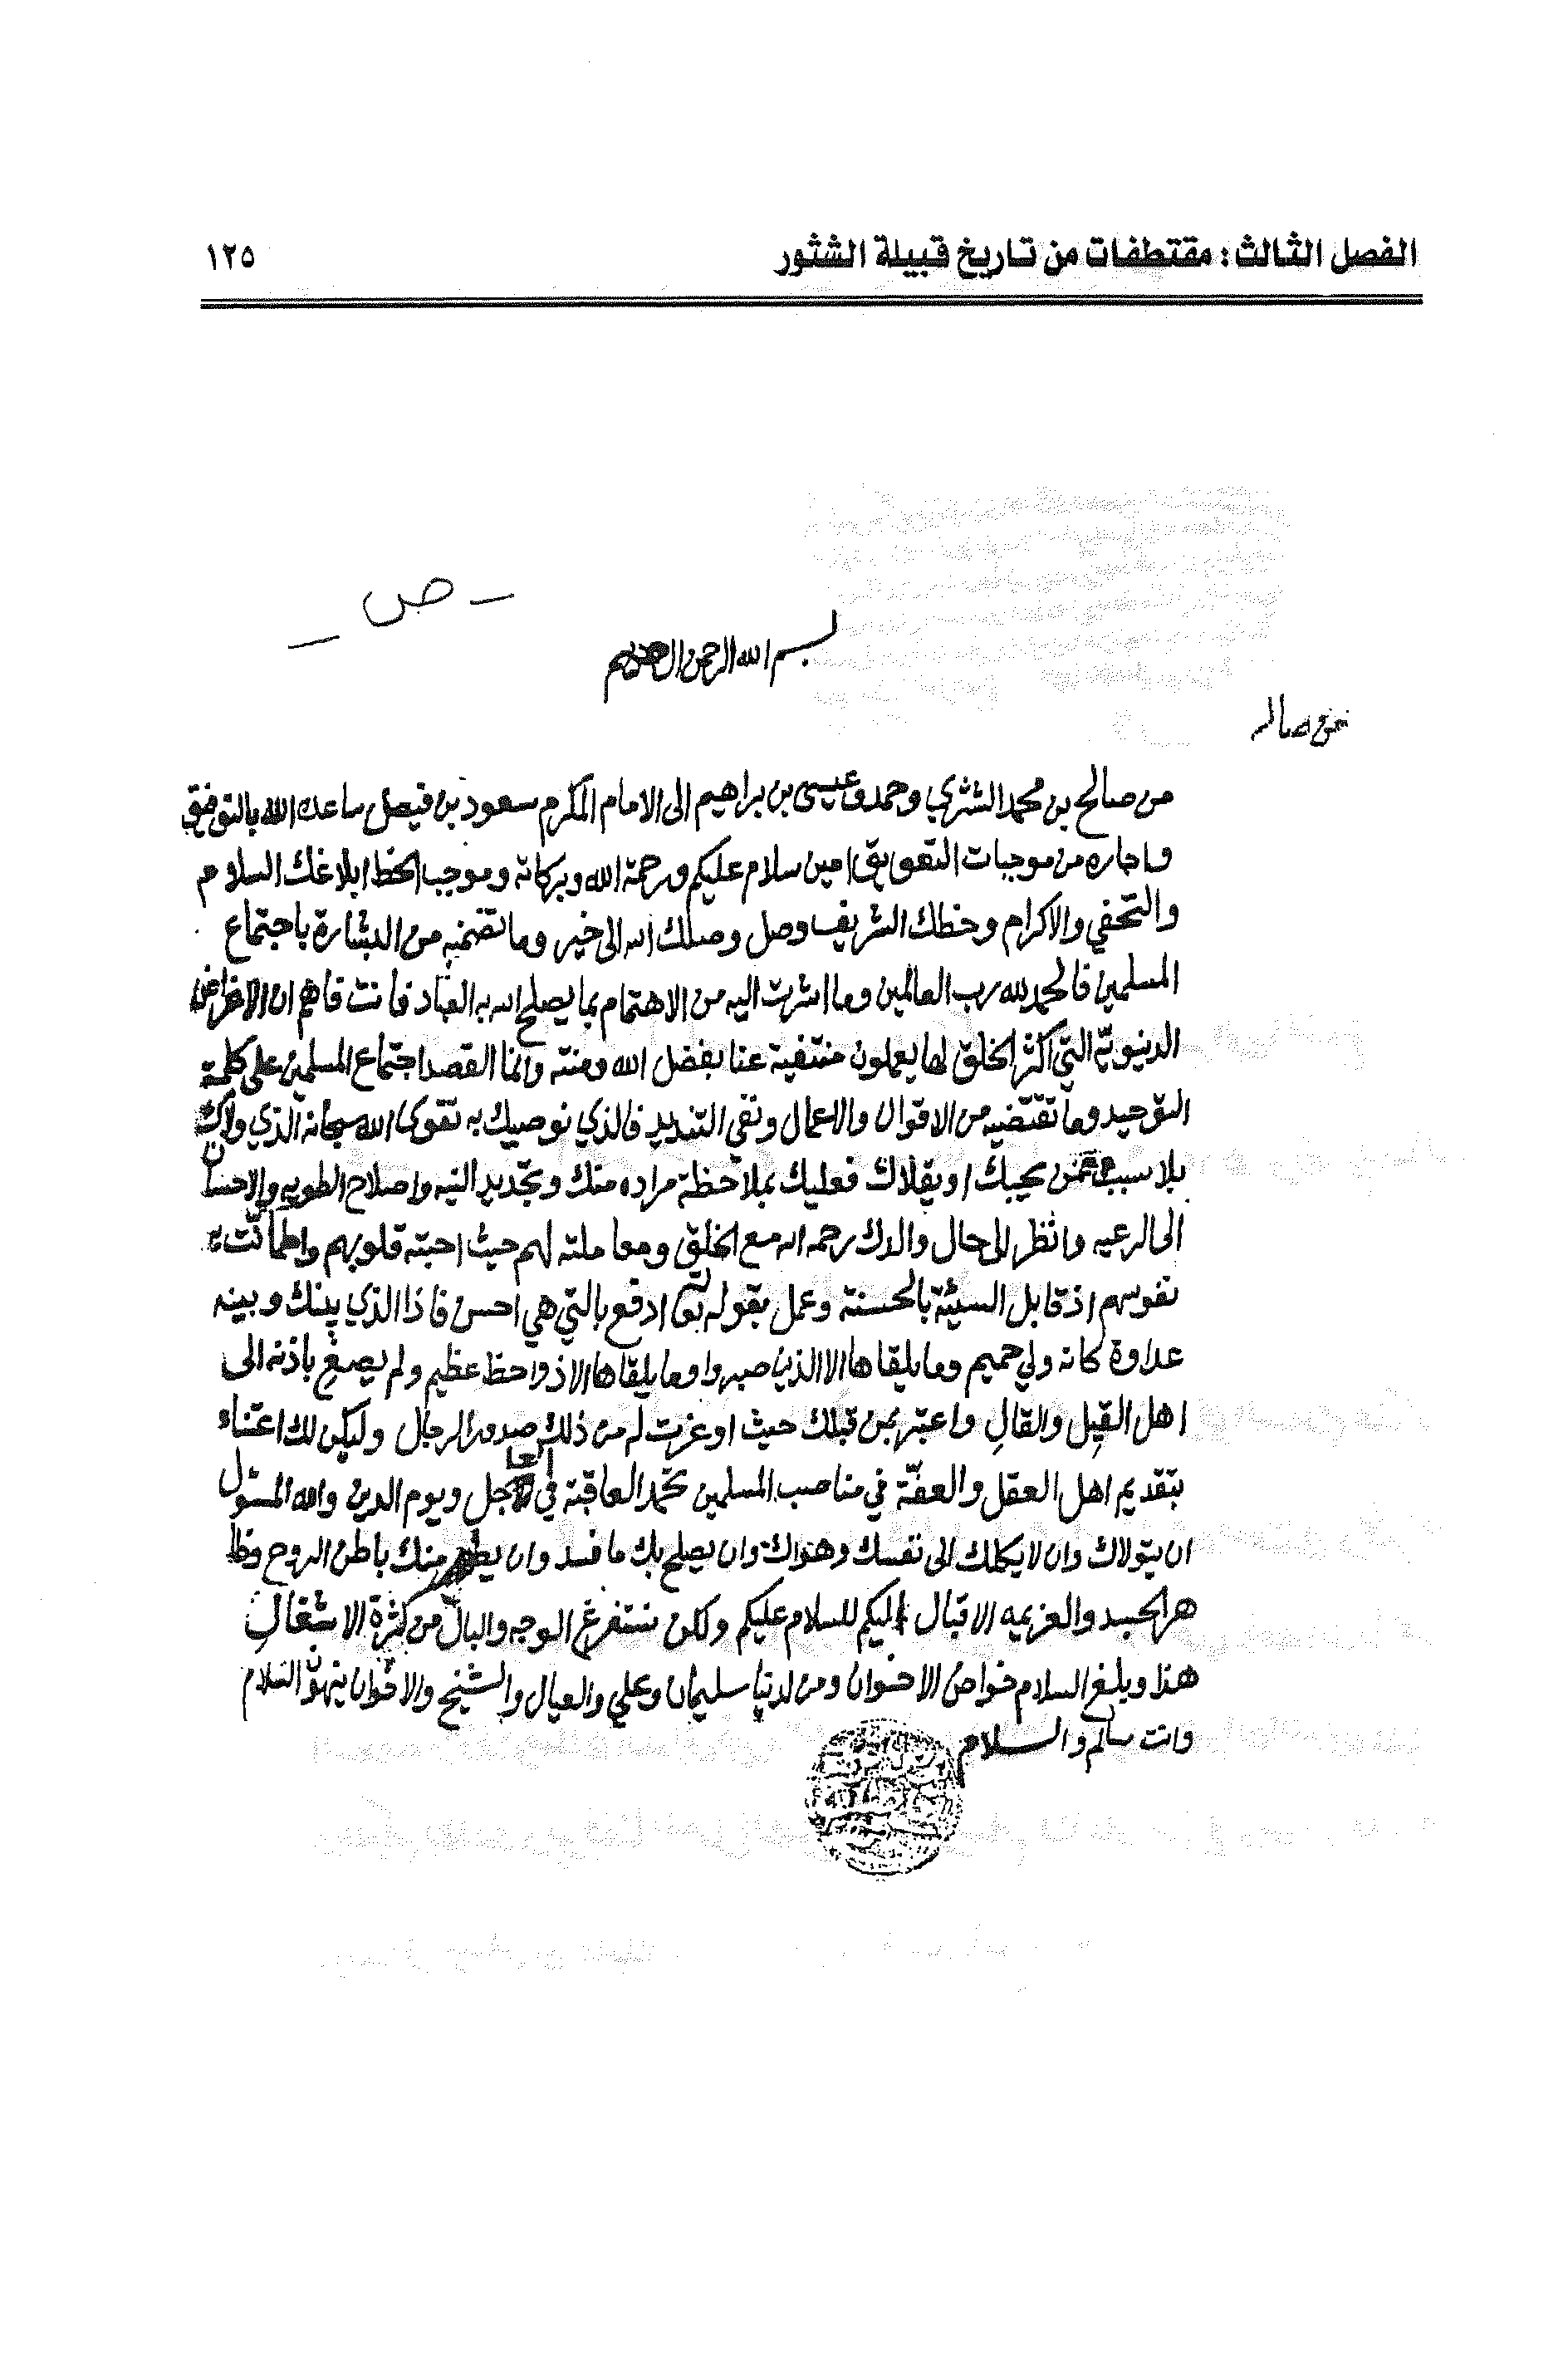 الفصل الثالث: مقتطفات من تاريخ قبيلة الشثور ١٢٥
ـ ص ـ
بسم الله الرحمن الرحيم
صالـ
من صالح بن محمد الشثري وحمد وعيسى بن براهيم الى الامام المكرم سعود بن فيصل ساعده الله بالتوفيق
واجاره من موجبات التعويق امين سلام عليكم ورحمة الله وبركاته وموجب الخط ابلاغك السلام
والتحفي والاكرام وخطك الشريف وصل وصلك الله الى خير وما تضمنه من البشارة باجتماع
المسلمين فالحمد لله رب العالمين وما اشرت اليه من الاهتمام بما يصلح الله به العباد فانت فاهم ان الاغراض
الدنيوية التي اكثر الخلق لها يعملون منتفية عنا بفضل الله ومنته وانما القصد اجتماع المسلمين على كلمة
التوحيد وما تقتضيه من الاقوال والاعمال ونفي التنديد فالذي نوصيك به تقوى الله سبحانه الذي ولاك
بلا سبب ممن يحبك او يقلاك فعليك بملاحظة مراده منك وتجديد النيه واصلاح الطويه والاحسان
الى الرعيه وانظر الى حال والدك رحمه الله مع الخلق ومعاملته لهم حيث احبته قلوبهم واطمأنت به
نفوسهم اذ قابل السيئة بالحسنة وعمل بقوله تعالى ادفع بالتي هي احسن فاذا الذي بينك وبينه
عداوة كانه ولي حميم وما يلقاها الا الذين صبروا وما يلقاها الا ذوا حظ عظيم ولم يصغ باذنه الى
اهل القيل والقال واعتبر بمن قبلك حيث اوغرت له من ذلك صدور الرجال وليكن لك اعتناء
بتقديم اهل العقل والعفة في مناصب المسلمين تحمد العاقبة في العاجل ويوم الدين والله المسئول
ان يتولاك وان لا يكلك الى نفسك وهواك وان يصلح بك ما فسد وان يطهر منك باطن الروح وظا
هر الجسد والعزيمه الاقبال اليكم للسلام عليكم ولكن نستفرغ الوجه والبال من كثرة الاشغال
هذا ويلغ السلام خواص الاخوان ومن لدنيا سليمان وعلي والعيال والشيخ والاخوان ينهون السلام
وانت سالم والسلام